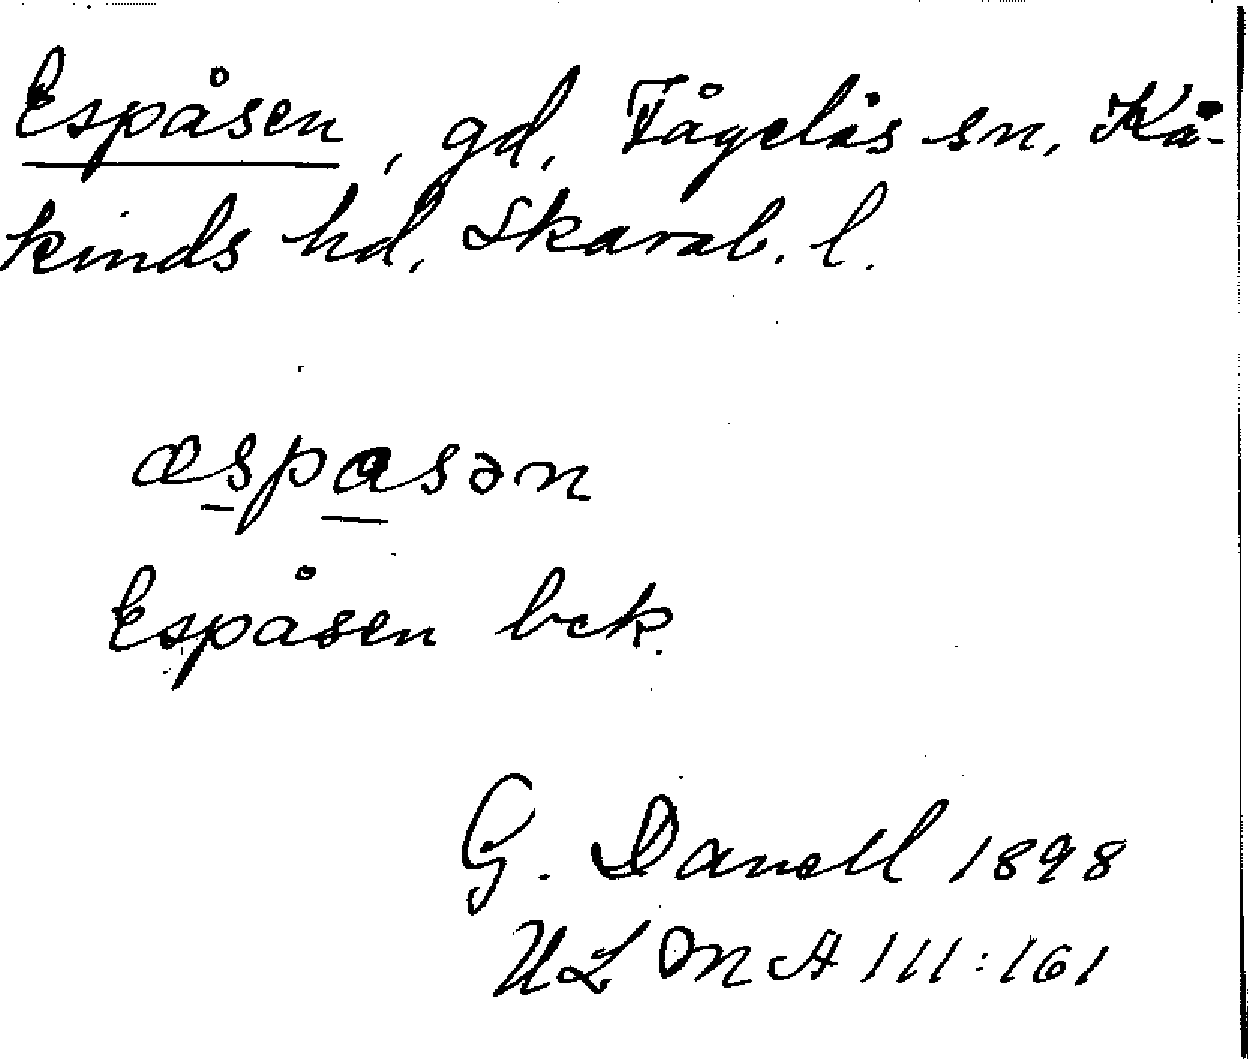 Espåsen, gd, Fågelås sn, Kå-
kinds hd, Skarab. l.
æspasən
Espåsen bek.
G. Danell 1898
ULMA 111:161